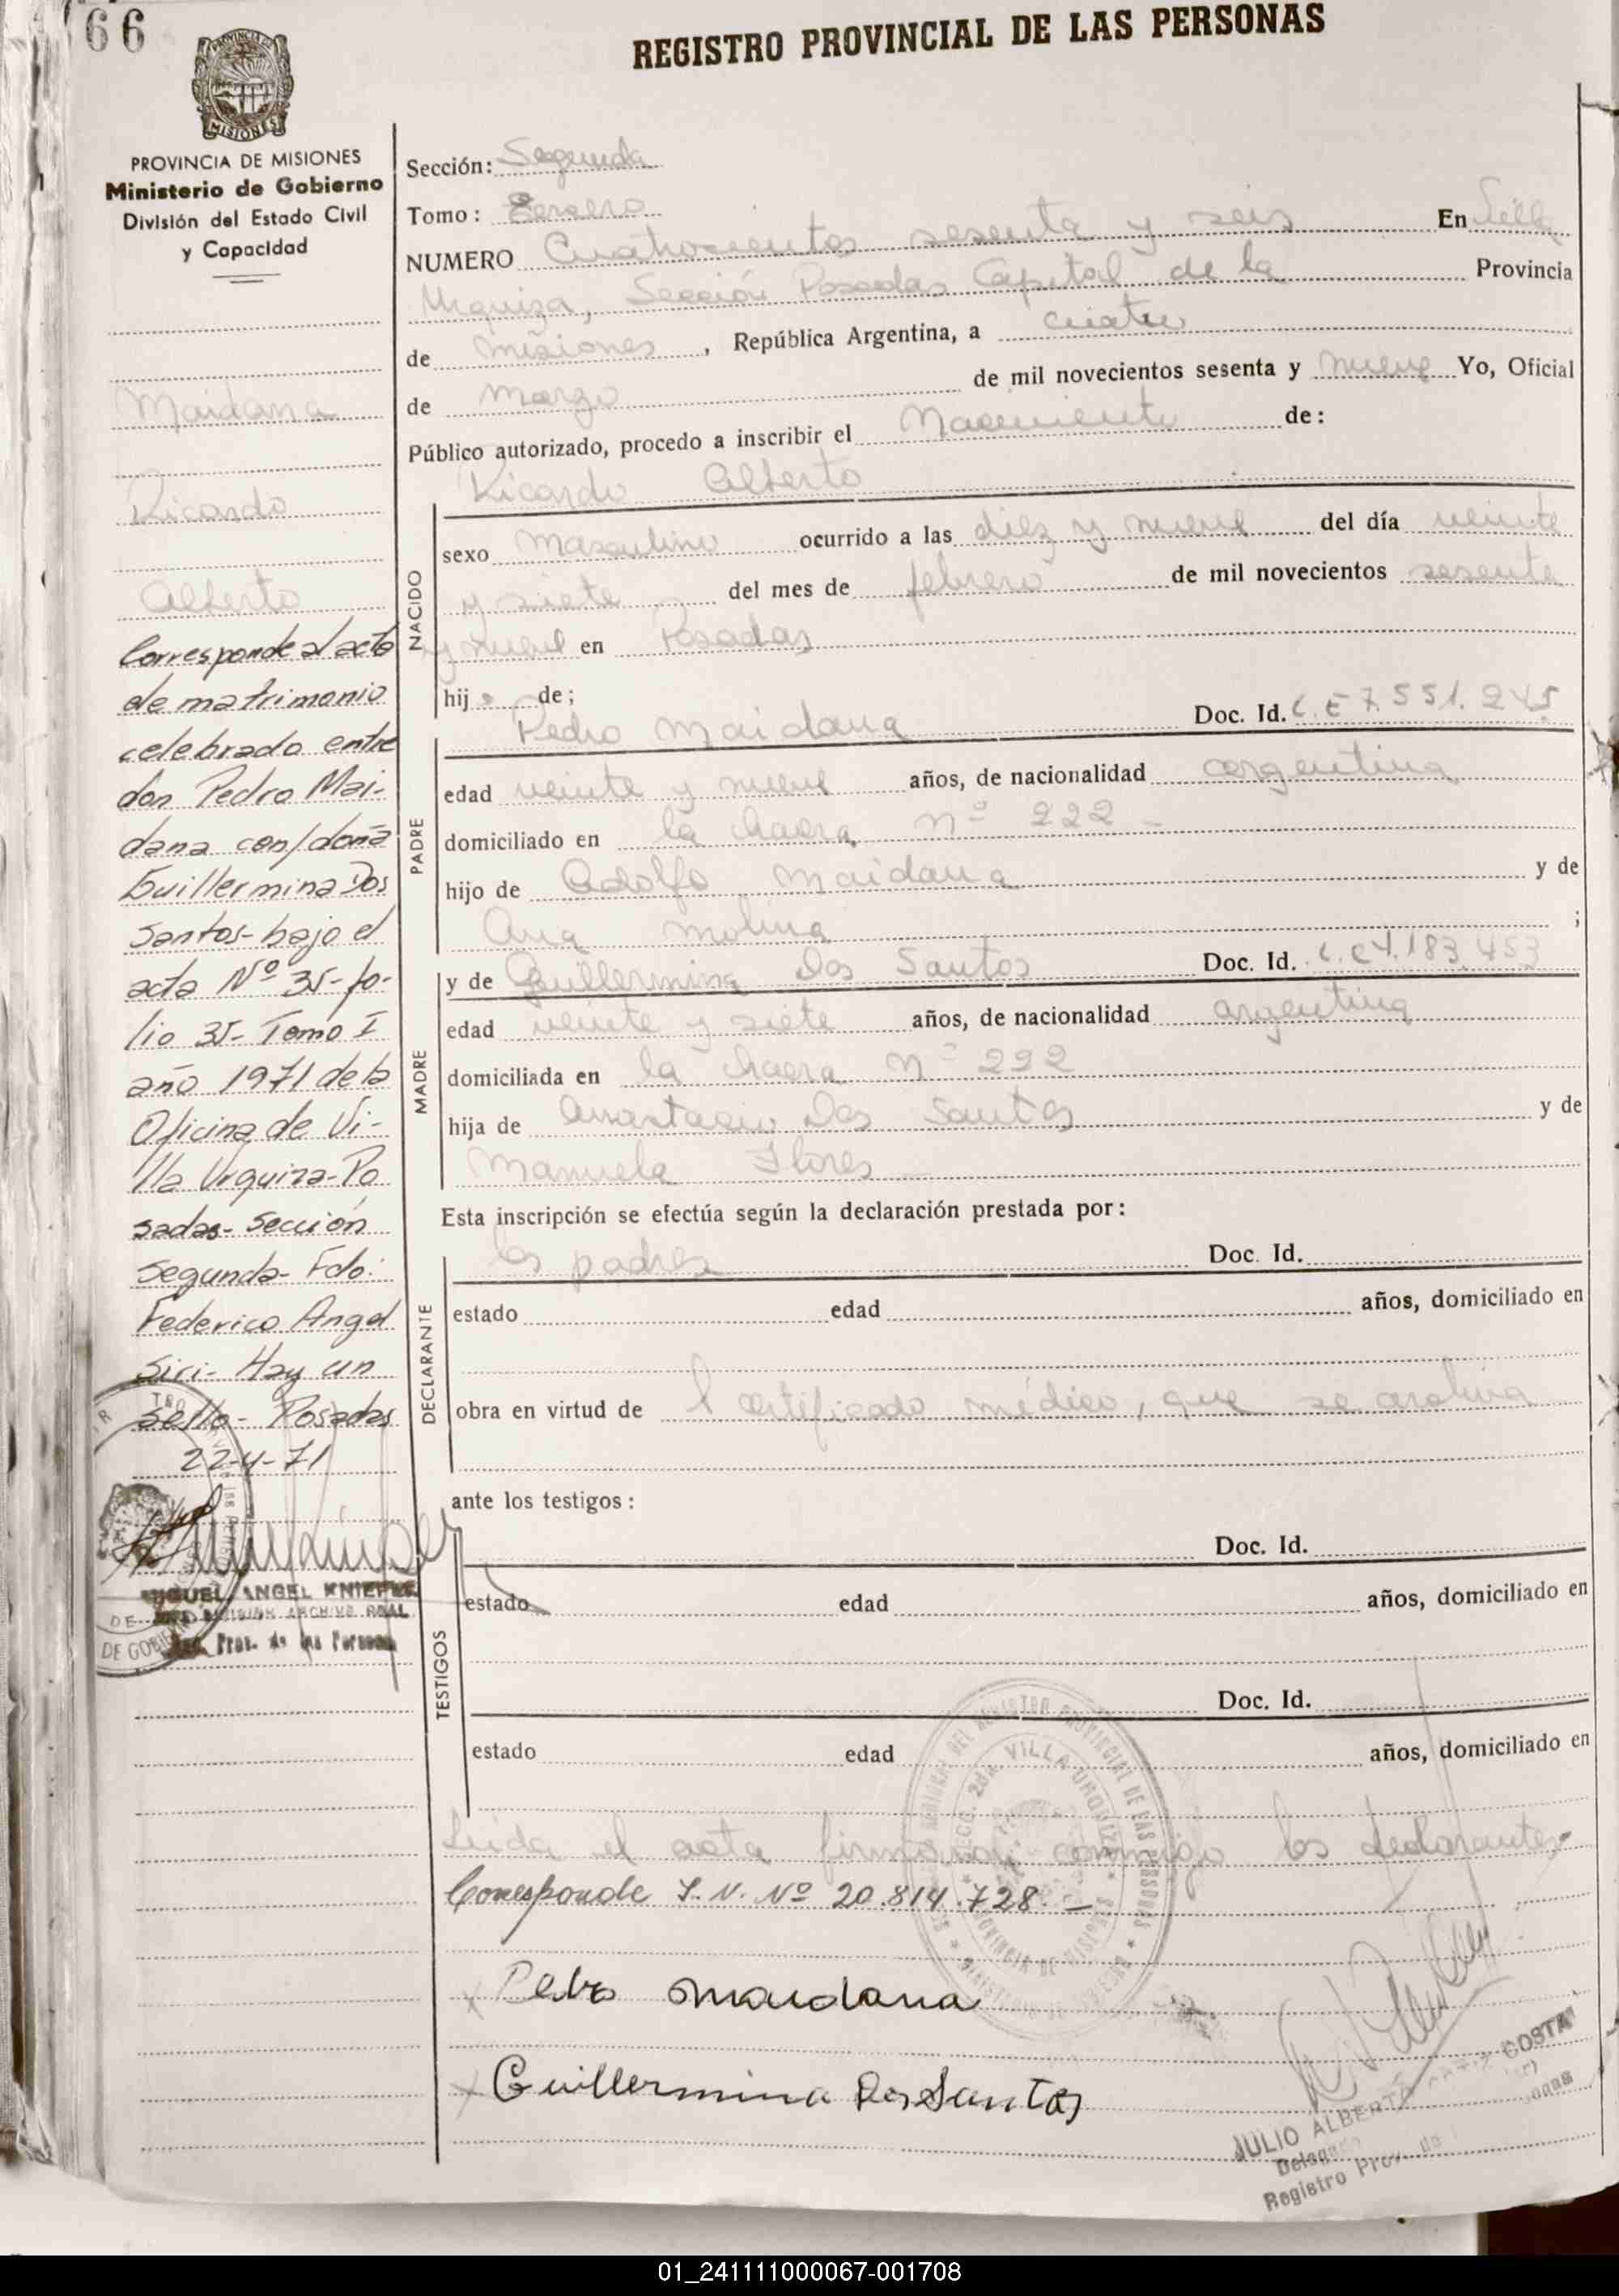 66
REGISTRO PROVINCIAL DE LAS PERSONAS
MISIONES
PROVINCIA DE MISIONES
Ministerio de Gobierno
División del Estado Civil
y Capacidad
Maidana
Ricardo
Alberto
Corresponde al acta
de matrimonio
celebrado entre
don Pedro Mai-
dana con/doña
Guillermina Dos
Santos- bajo el
acta Nº 35- fo-
lio 35- Tomo I
año 1971 de la
Oficina de Vi-
lla Urquiza- Po
sadas- Sección
Segunda- Fdo:
Federico Angel
Siri- Hay un
sello- Posadas
22-4-71
MIGUEL ANGEL
DIVISION ARCHIVO GRAL
Prov. de las Personas
Sección: Segunda
Tomo: Tercero
NUMERO Cuatrocientos sesenta y seis En Villa
Urquiza, Sección Posadas Capital de la Provincia
de Misiones, República Argentina, a cuatro
de marzo de mil novecientos sesenta y nueve Yo, Oficial
Público autorizado, procedo a inscribir el Nacimiento de:
Ricardo Alberto
NACIDO
sexo Masculino ocurrido a las diez y nueve del día veinte
y siete del mes de febrero de mil novecientos sesenta
y nueve en Posadas
hijo de;
Pedro Maidana Doc. Id. L.E 7.551.245
PADRE
edad veinte y nueve años, de nacionalidad argentina
domiciliado en la chacra nº 222 -
hijo de Adolfo Maidana y de
Ana Molina ;
y de Guillermina Dos Santos Doc. Id. L.C 4.183.453
MADRE
edad veinte y siete años, de nacionalidad argentina
domiciliada en la chacra nº 222
hija de Anastacio Dos Santos y de
Manuela Flores
Esta inscripción se efectúa según la declaración prestada por:
los padres Doc. Id.
DECLARANTE
estado edad años, domiciliado en
obra en virtud de l certificado médico, que se archiva
ante los testigos:
TESTIGOS
Doc. Id.
estado edad años, domiciliado en
Doc. Id.
estado edad años, domiciliado en
Leida el acta firman conmigo los declarantes-
Corresponde I.N. Nº 20.814.728. -
Pedro Maidana
Guillermina Dos Santos
JULIO ALBERTO COSTA
Registro Prov. de
01_241111000067-001708